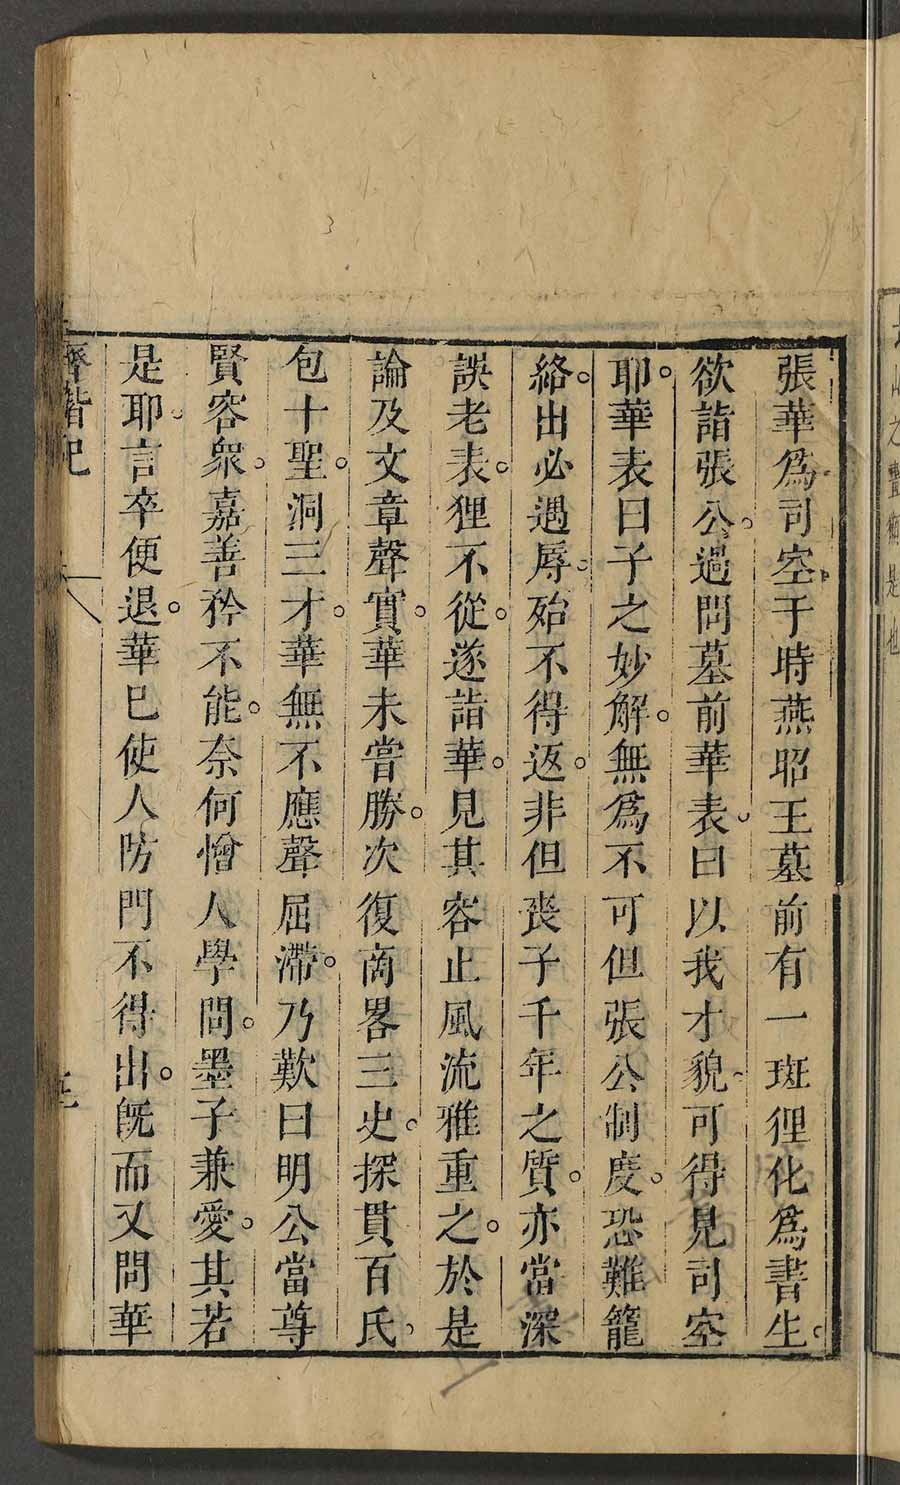 張華爲司空。于時燕昭王墓前有一斑狸化爲書生。
欲詣張公。過問墓前華表。曰以我才貌。可得見司空
耶。華表曰子之妙解。無爲不可但張公制度。恐難籠
絡。出必遇辱。殆不得返。非但喪子千年之質。亦當深
誤老表。狸不從。遂詣華。見其容止風流雅重之。於是
論及文章聲實。華未嘗勝。次復商畧三史。探貫百氏。
包十聖。洞三才。華無不應聲屈滯。乃歎曰明公當尊
賢容衆。嘉善矜不能。奈何憎人學問。墨子兼愛。其若
是耶。言卒便退。華已使人防門不得出。旣而又問華
齊諧記